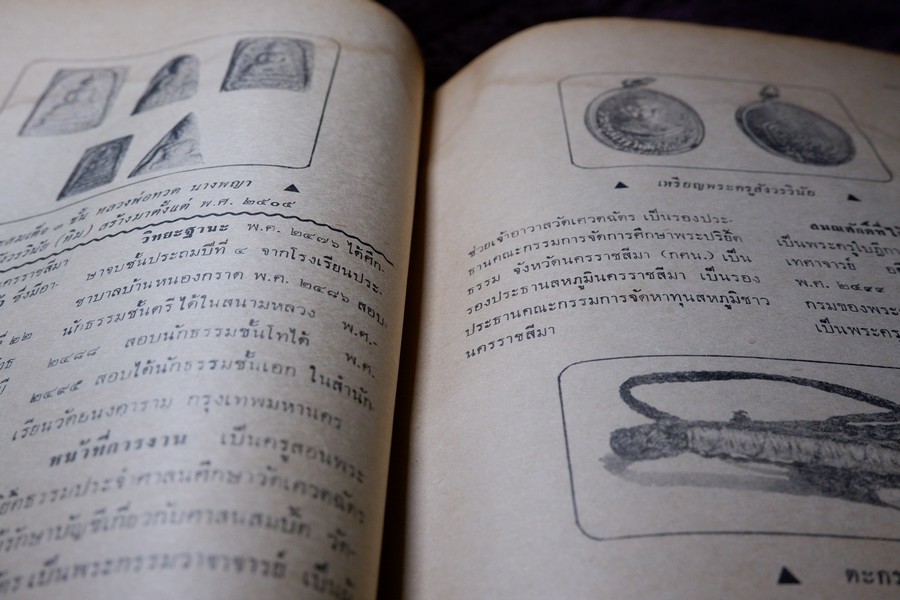 ๓ ชั้น หลวงพ่อทวด นางพญา
(พิม) สร้างมาตั้งแต่ พ.ศ. ๒๕๐๕
นครราชสีมา
วิทยะฐานะ พ.ศ. ๒๔๗๖ ได้ศึก-
ษาจบชั้นประถมปีที่ ๔ จากโรงเรียนประ-
ชาบาลบ้านหนองกราด พ.ศ. ๒๔๘๖ สอบ-
นักธรรมชั้นตรีได้ในสนามหลวง พ.ศ.-
๒๔๘๘ สอบนักธรรมชั้นโทได้ พ.ศ.
๒๔๙๕ สอบได้นักธรรมชั้นเอก ในสำนัก-
เรียนวัดอนงคาราม กรุงเทพมหานคร
หน้าที่การงาน เป็นครูสอนพระ
ประจำศาสนศึกษาวัดเศวตฉัตร
รักษาบัญชีเกี่ยวกับศาสนสมบัติ วัด-
เป็นพระกรรมวาจาจารย์
เหรียญพระครูสังวรวินัย
ช่วยเจ้าอาวาสวัดเศวตฉัตร เป็นรองประ-
ธานคณะกรรมการจัดการศึกษาพระปริยัติ
ธรรม จังหวัดนครราชสีมา (กศน.) เป็น
รองประธานสหภูมินครราชสีมา เป็นรอง
ประธานคณะกรรมการจัดหาทุนสหภูมิชาว
นครราชสีมา
สมณศักดิ์ที่
เป็นพระครูใบฎีกา
เทศาจารย์
พ.ศ. ๒๔๙๙
กรมของพระ
เป็นพระคร
ตะกร